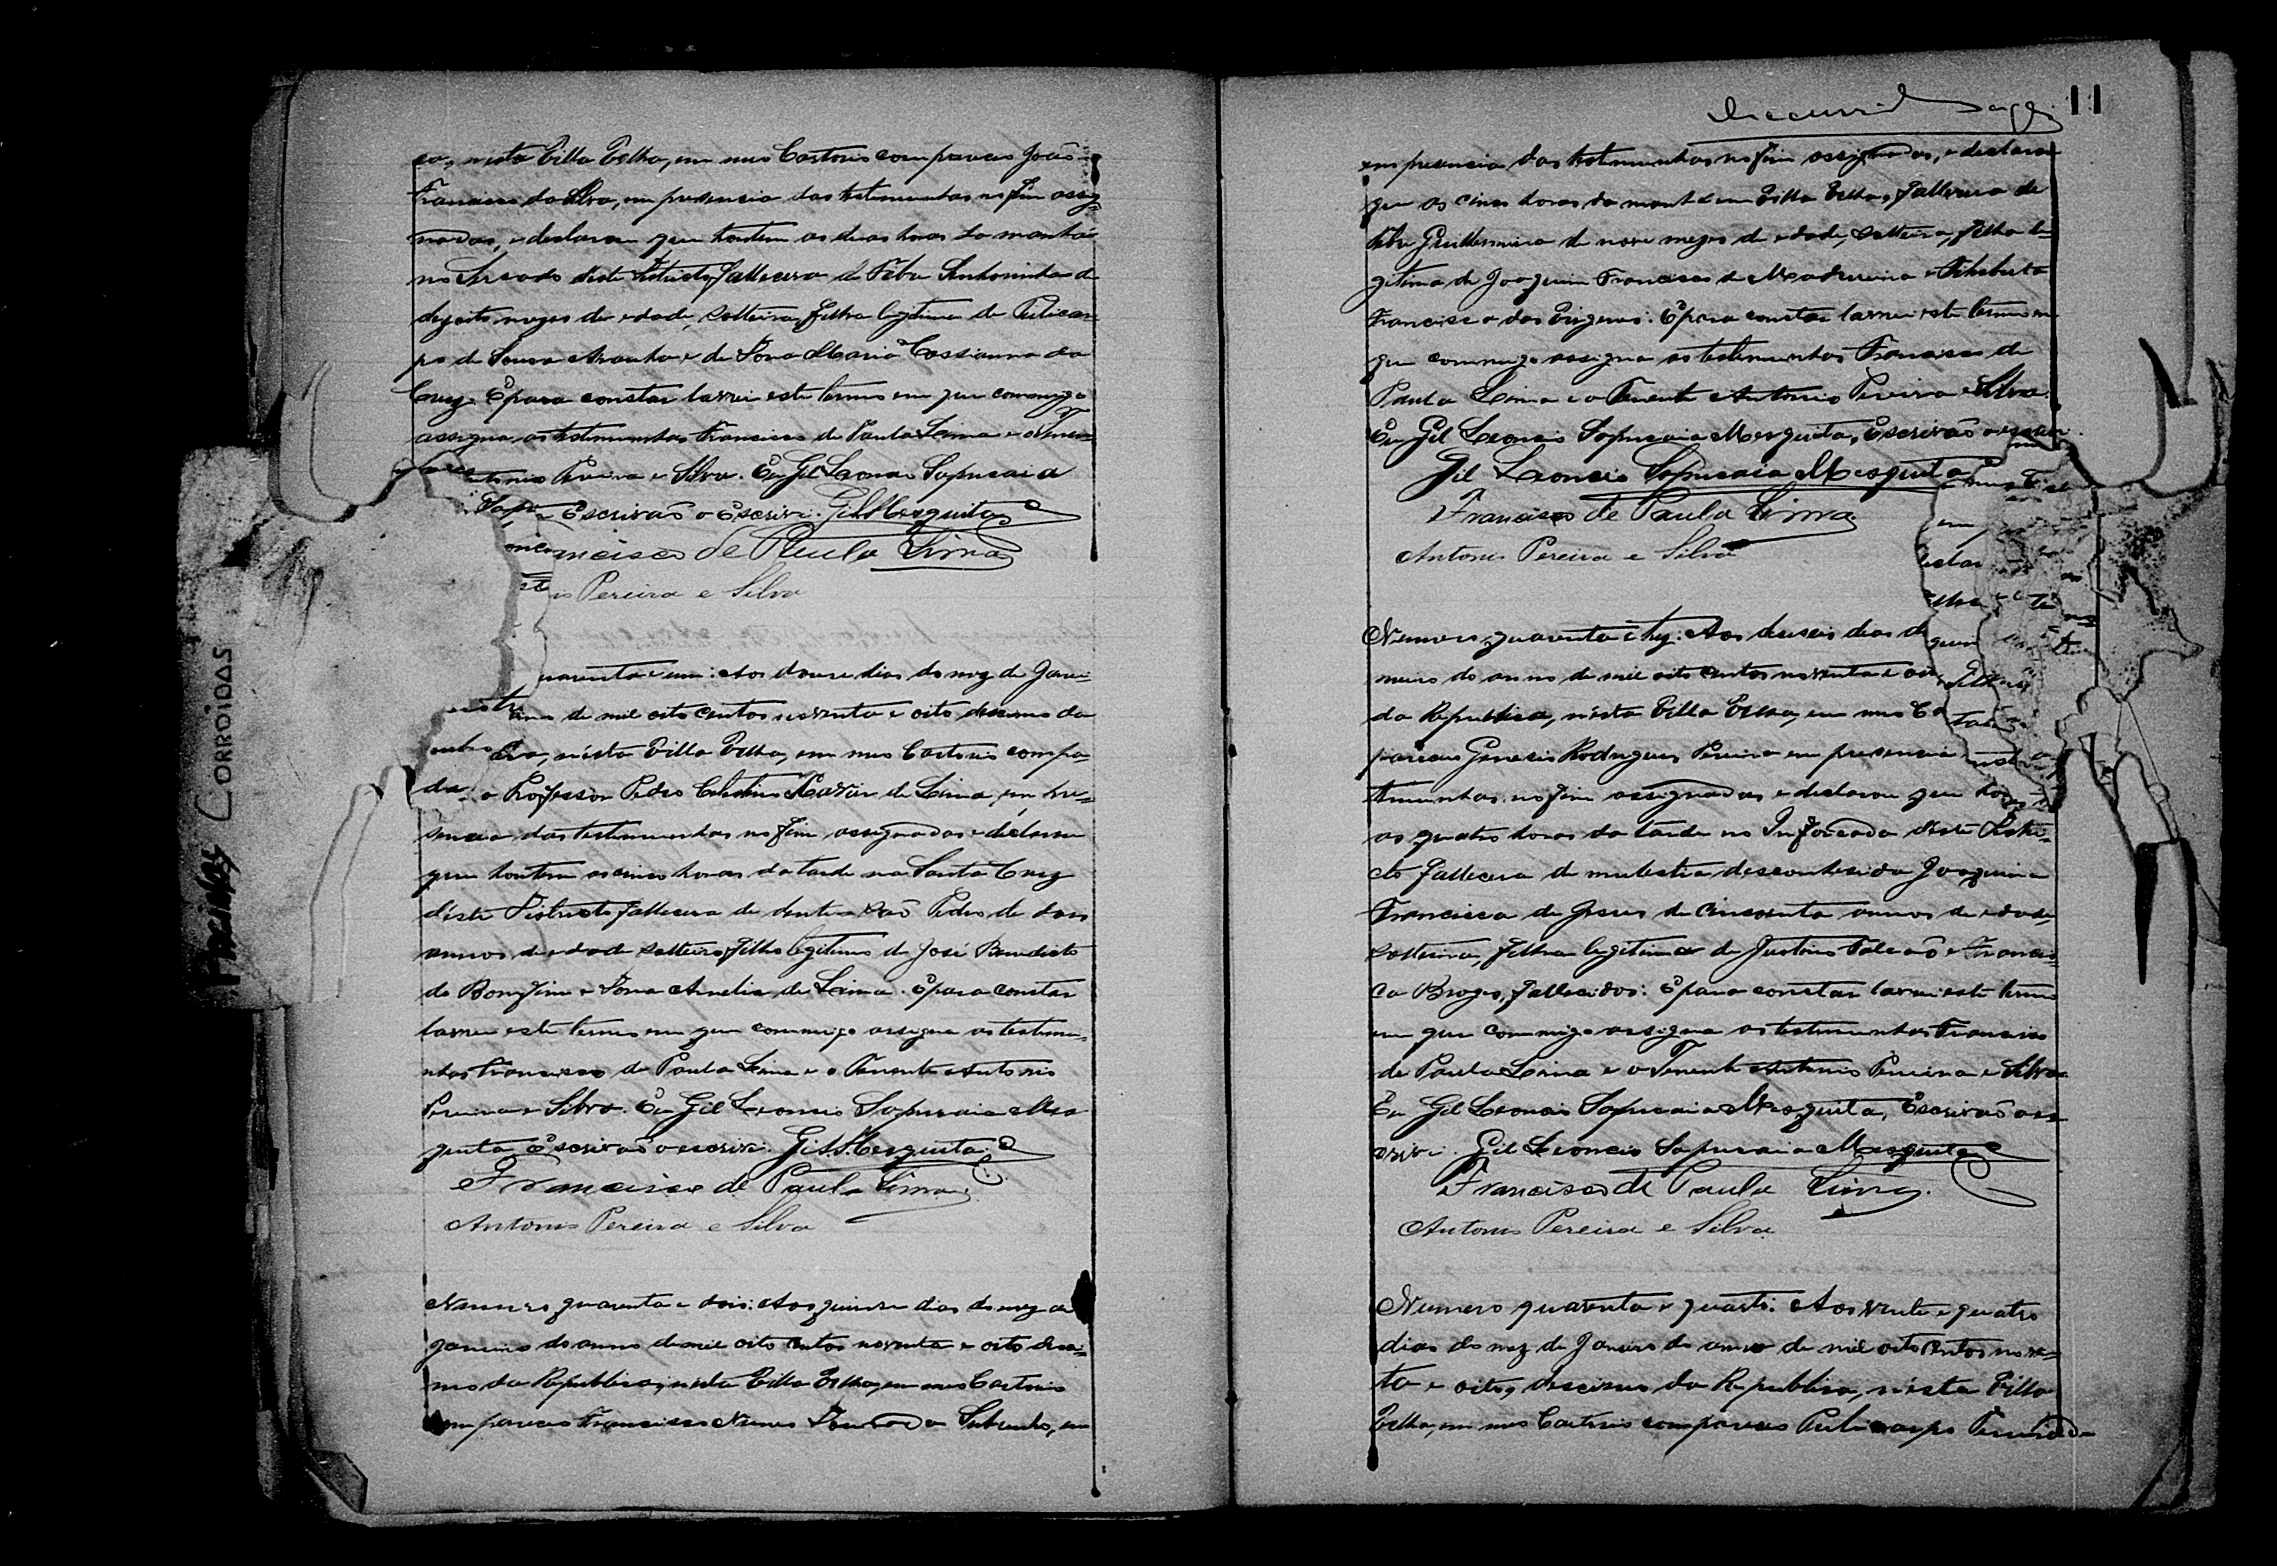 ca, nesta Villa Velha, em meu Cartorio compareceu João
Francisco da Silva, em presencia das testemunhas no fim assig-
nadas, e declarou que hontem as duas horas da manhã
no deste Districto, fallecera de Febre Antoninha de
dezoito mezes de edade, solteira, filha legitima de Policar-
po de Souza Aranha e de Dona Maria Cassianna da
Cruz. E para constar lavrei este termo em que commigo
assigna as testemunhas Francisco de Paula Lima e o Tenen-
tonio Pereira e Silva. Eu Gil Leoncio Sapucaia
Escrivão o Escrevi. Gil Mesquita
ncisco de Paula Lima
io Pereira e Silva
uarenta e um: Aos douse dias do mez de Janei-
anno de mil oito centos noventa e oito decimo da
nesta Villa Velha, em meu Cartorio compa-
o Professor Pedro Celestino Xavier de Lima, em pre-
sencia das testemunhas no fim assignadas e declarou
que hontem as cinco horas da tarde na Santa Cruz
déste Districto fallecera de dentição Pedro de dois
annos de edade solteiro, filho legitimo de José Benedicto
do Bomfim e Dona Amelia de Lima. E para constar
lavrei este termo em que commigo assigna as testemu-
nhas Francisco de Paula Lima e o Tenente Antonio
Pereira e Silva. Eu Gil Leoncio Sapucaia Mes
quita Escrivão o escrevi. Gil S. Mesquita
Francisco de Paula Lima
Antonio Pereira e Silva
Numero quarenta e dois: Aos quinse dias do mez de
Janeiro do anno de mil oito centos noventa e oito deci-
mo da Republica, nesta Villa Velha, em meu Cartorio
compareceu Francisco Nunes, em
11
em presencia das testemunhas no fim assignadas, e declarou
que as cinco horas da manhã em Villa Velha, fallecera de
febre Guilhermina de nove mezes de edade, solteira, filha le-
gitima de Joaquim Francisco de Madureira e Filisberta
Francisca das Virgens. E para constar lavrei este termo em
que commigo assigna as testemunhas Francisco de
Paula Lima e o Tenente Antonio Pereira e Silva.
Eu Gil Leoncio Sapucaia Mesquita, Escrivão o escrevi.
Gil Leoncio Sapucaia Mesquita
Francisco de Paula Lima
Antonio Pereira e Silva
Numero quarenta e trez: Aos deseseis dias d
neiro do anno de mil oito centos noventa e oi
da Republica, nésta Villa Velha, em meu Ca
pareceu Genesio Rodrigues Pereira em presencia
temunhas no fim assignadas e declarou que
as quatro horas da tarde no Inforcado déste Distri-
cto fallecera de mulestia desconhecida Joaquina
Francisca de Jesus de cincoenta annos de edade,
solteira, filha legitima de Justino Falcão e Francis-
ca Borges, fallecidos: E para constar lavrei este termo
em que commigo assigna as testemunhas Francisco
de Paula Lima e o Tenente Antonio Pereira e Silva
Eu Gil Leoncio Sapucaia Mesquita, Escrivão o es-
crevi. Gil Leoncio Sapucaia Mesquita
Francisco de Paula Lima.
Antonio Pereira e Silva
Numero quarenta e quatro: Aos vinte e quatro
dias do mez de Janeiro do anno de mil oito centos noven-
ta e oito, decimo da Republica, nésta Villa
Velha, em meu Cartorio compareceu Policarpo
PAGINAS CORROIDAS